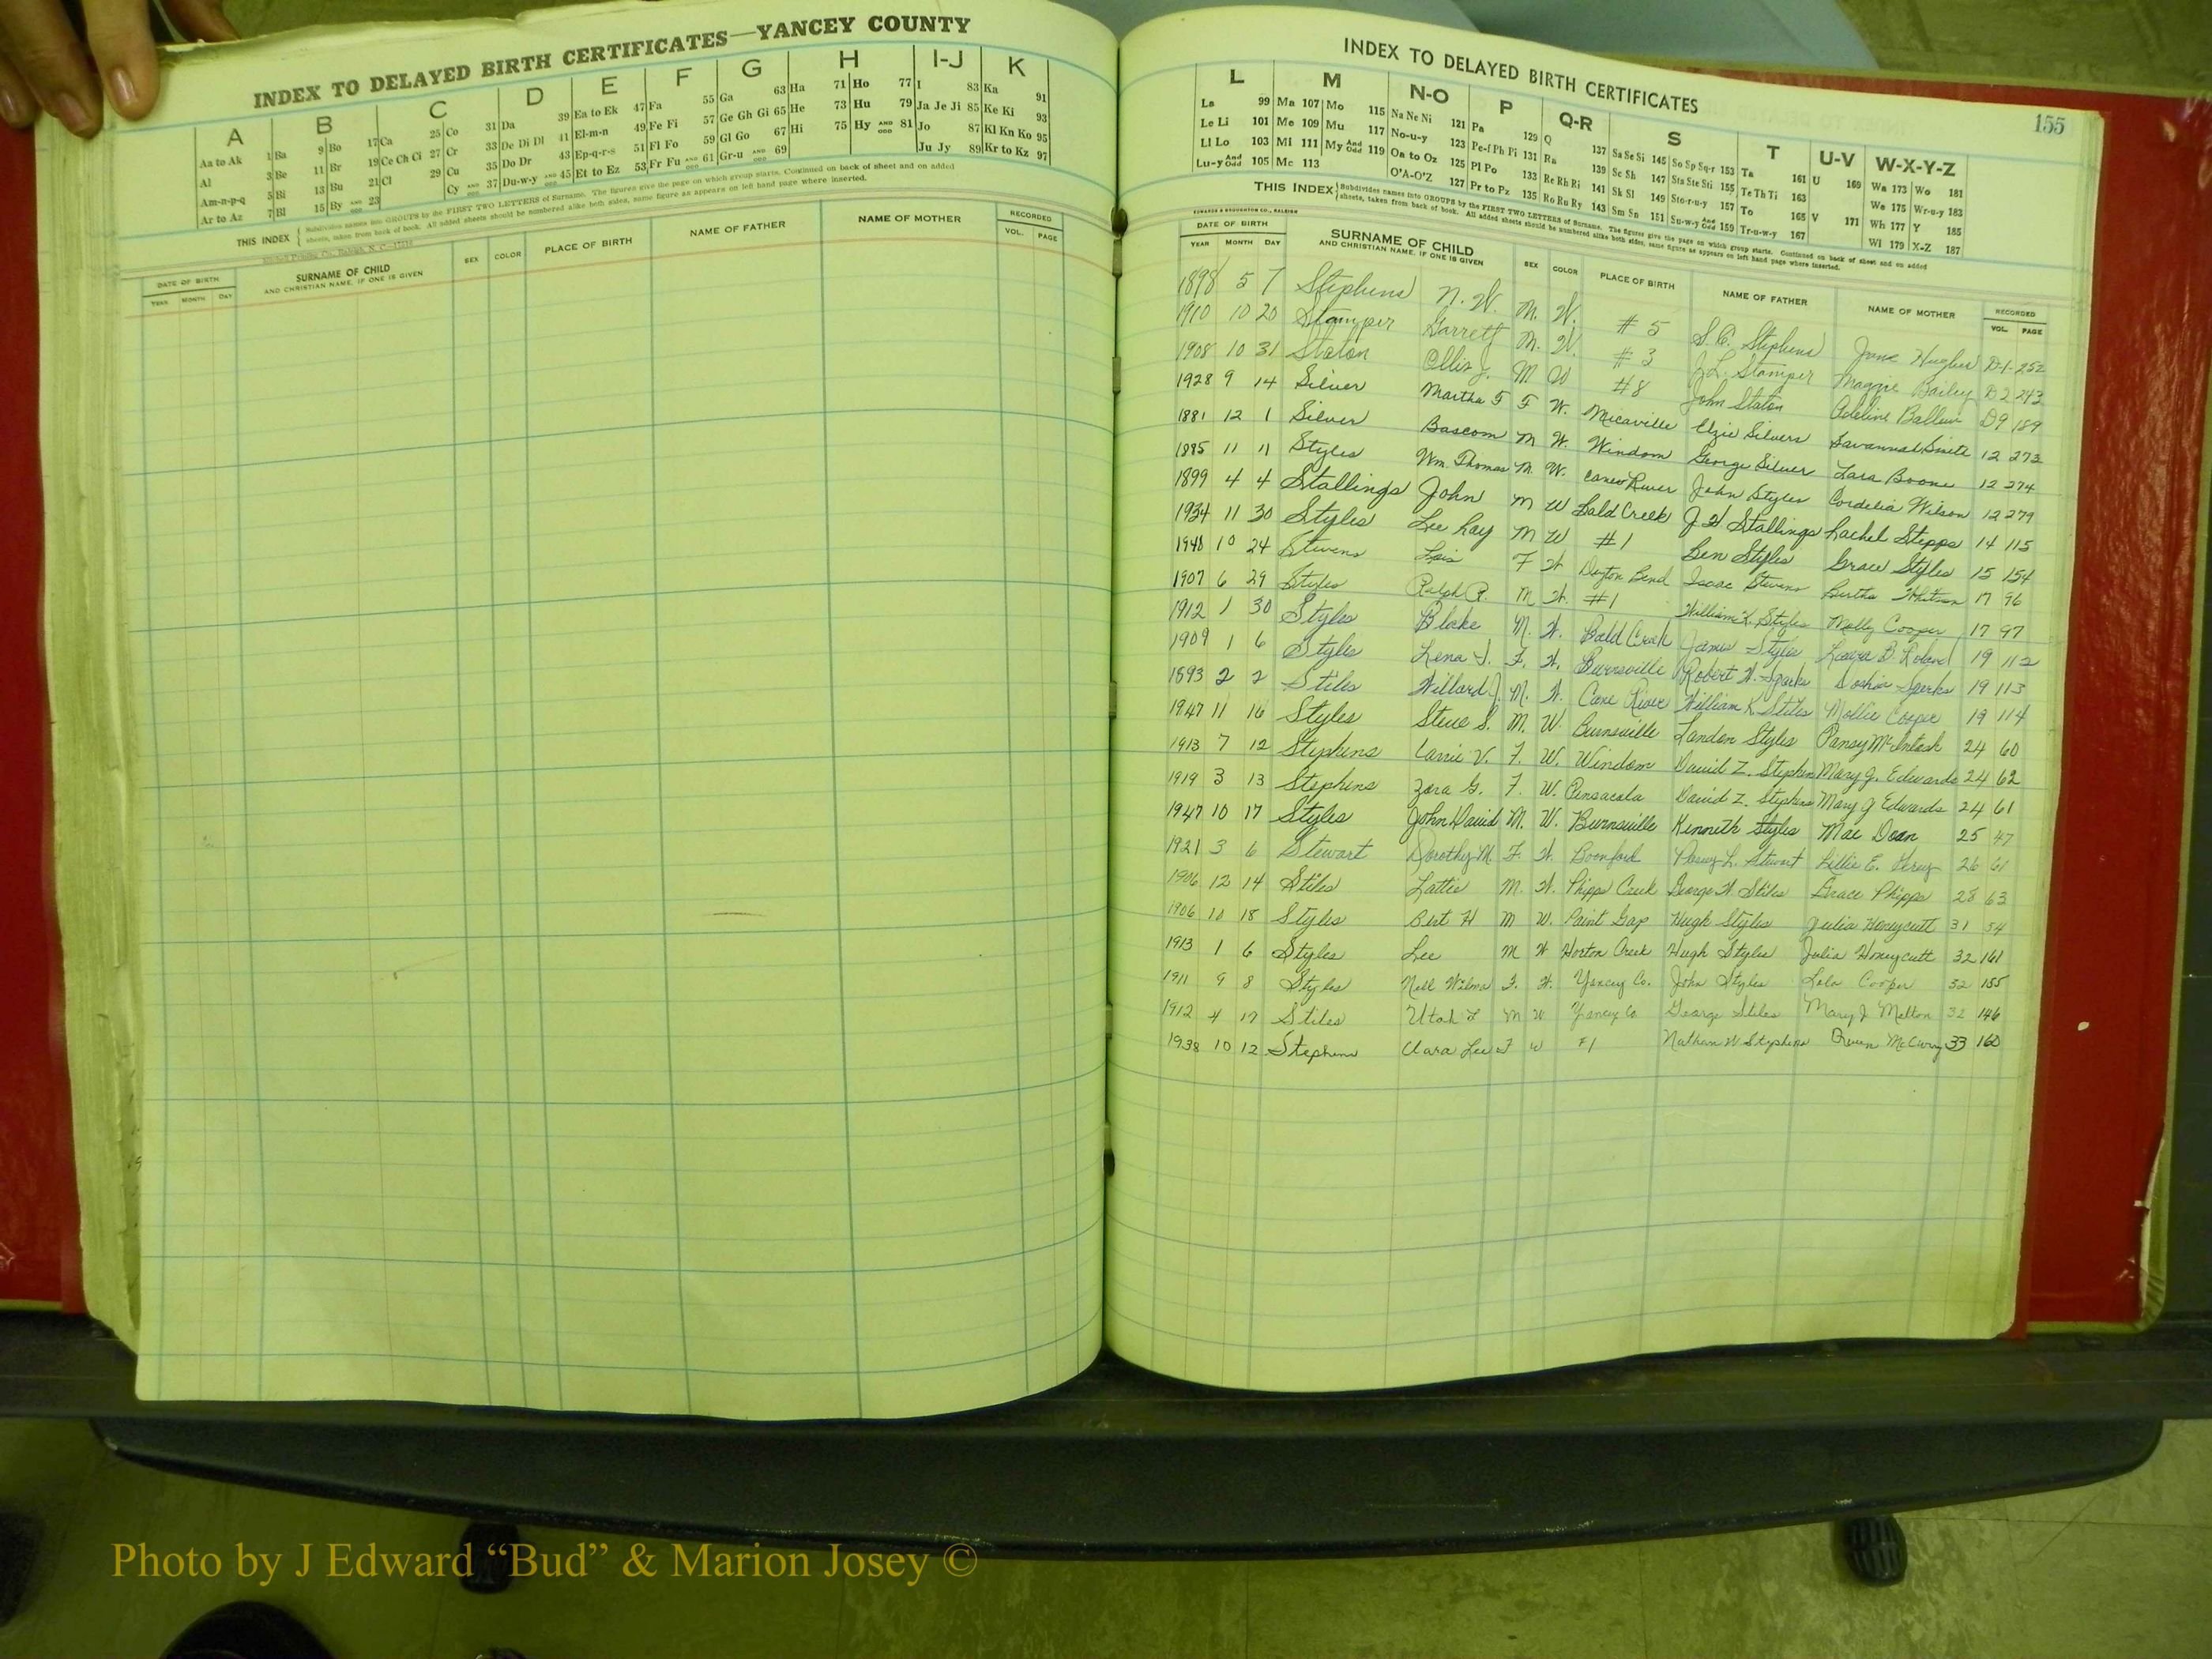 INDEX TO DELAYED BIRTH CERTIFICATES—YANCEY COUNTY
A B C D E F G H I-J K
Aa to Ak 1 Ba 9 Bo 17 Ca 25 Co 31 Da 39 Ea to Ek 47 Fa 55 Ga 63 Ha 71 Ho 77 I 83 Ka 91
Al 3 Be 11 Br 19 Ce Ch Ci 27 Cr 33 De Di Dl 41 El-m-n 49 Fe Fi 57 Ge Gh Gi 65 He 73 Hu 79 Ja Je Ji 85 Ke Ki 93
Am-n-p-q 5 Bi 13 Bu 21 Cl 29 Cu 35 Do Dr 43 Ep-q-r-s 51 Fl Fo 59 Gl Go 67 Hi 75 Hy AND ODD 81 Jo 87 Kl Kn Ko 95
Ar to Az 7 Bl 15 By AND ODD 23 Cy AND ODD 37 Du-w-y AND ODD 45 Et to Ez 53 Fr Fu AND ODD 61 Gr-u AND ODD 69 Ju Jy 89 Kr to Kz 97
THIS INDEX { Subdivides names into GROUPS by the FIRST TWO LETTERS of Surname. The figures give the page on which group starts. Continued on back of sheet and on added
sheets, taken from back of book. All added sheets should be numbered alike both sides, same figure as appears on left hand page where inserted.
DATE OF BIRTH SURNAME OF CHILD SEX COLOR PLACE OF BIRTH NAME OF FATHER NAME OF MOTHER RECORDED
YEAR MONTH DAY AND CHRISTIAN NAME, IF ONE IS GIVEN VOL. PAGE
INDEX TO DELAYED BIRTH CERTIFICATES
155
L M N-O P Q-R S T U-V W-X-Y-Z
La 99 Ma 107 Mo 115 Na Ne Ni 121 Pa 129 Q 137 Sa Se Si 145 So Sp Sq-r 153 Ta 161 U 169 Wa 173 Wo 181
Le Li 101 Me 109 Mu 117 No-u-y 123 Pe-f Ph Pi 131 Ra 139 Sc Sh 147 Sta Ste Sti 155 Te Th Ti 163 We 175 Wr-u-y 183
Ll Lo 103 Mi 111 My And Odd 119 Oa to Oz 125 Pl Po 133 Re Rh Ri 141 Sk Sl 149 Sto-r-u-y 157 To 165 V 171 Wh 177 Y 185
Lu-y And Odd 105 Mc 113 O'A-O'Z 127 Pr to Pz 135 Ro Ru Ry 143 Sm Sn 151 Su-w-y And Odd 159 Tr-u-w-y 167 Wi 179 X-Z 187
THIS INDEX { Subdivides names into GROUPS by the FIRST TWO LETTERS of Surname. The figures give the page on which group starts. Continued on back of sheet and on added
sheets, taken from back of book. All added sheets should be numbered alike both sides, same figure as appears on left hand page where inserted.
EDWARDS & BROUGHTON CO., RALEIGH
DATE OF BIRTH SURNAME OF CHILD SEX COLOR PLACE OF BIRTH NAME OF FATHER NAME OF MOTHER RECORDED
YEAR MONTH DAY AND CHRISTIAN NAME, IF ONE IS GIVEN VOL. PAGE
1898 5 7 Stephens N. W. M. W. #5 S. C. Stephens Jane Hughes D-1-252
1910 10 20 Stamper Garrett M. W. #3 J. L. Stamper Maggie Bailey D2 243
1908 10 31 Staton Ollis J. M W #8 John Staton Adeline Ballew D9 189
1928 9 14 Silver Martha F F W. Micaville Elzie Silvers Savannah Smith 12 273
1881 12 1 Silver Bascom M W. Windom George Silver Lara Boone 12 274
1885 11 11 Styles Wm. Thomas M. W. Caney River John Styles Cordelia Wilson 12 279
1899 4 4 Stallings John M W Bald Creek J H Stallings Rachel Stepps 14 115
1934 11 30 Styles Lee Ray M W #1 Ben Styles Grace Styles 15 154
1948 10 24 Stevens Lois F W Dayton Bend Isaac Stevens Bertha Whitson 17 96
1907 6 29 Styles Ralph R. M W. #1 William K. Styles Molly Cooper 17 97
1912 1 30 Styles Blake M. W. Bald Creek James Styles B. Roland 19 112
1909 1 6 Styles Lena F. W. Burnsville Robert W. Sparks Doshie Sparks 19 113
1893 2 2 Stiles Willard J. M. W. Cane River William K. Stiles Mollie Cooper 19 114
1947 11 16 Styles Steve S. M. W. Burnsville Landon Styles Pansy McIntosh 24 60
1913 7 12 Stephens Carrie V. F. W. Windom David Z. Stephens Mary J. Edwards 24 62
1919 3 13 Stephens Zora G. F. W. Pensacola David Z. Stephens Mary J Edwards 24 61
1947 10 17 Styles John David M. W. Burnsville Kenneth Styles Mae Dean 25 47
1921 3 6 Stewart Dorothy M. F. W. Boonford L. Stewart Lillie E. 26 61
1906 12 14 Stiles Lattie M. W. Phipps Creek George W. Stiles Grace Phipps 28 63
1906 10 18 Styles Bert H M W. Paint Gap Hugh Styles Julia Honeycutt 31 54
1913 1 6 Styles Lee M W Horton Creek Hugh Styles Julia Honeycutt 32 161
1911 9 8 Styles Nell Wilma F. W. Yancey Co. John Styles Lela Cooper 32 155
1912 4 17 Stiles Utah L M W Yancey Co George Stiles Mary J Melton 32 146
1938 10 12 Stephens Clara Lee F W #1 Nathan W Stephens Gwen McCurry 33 160
Photo by J Edward “Bud” & Marion Josey ©